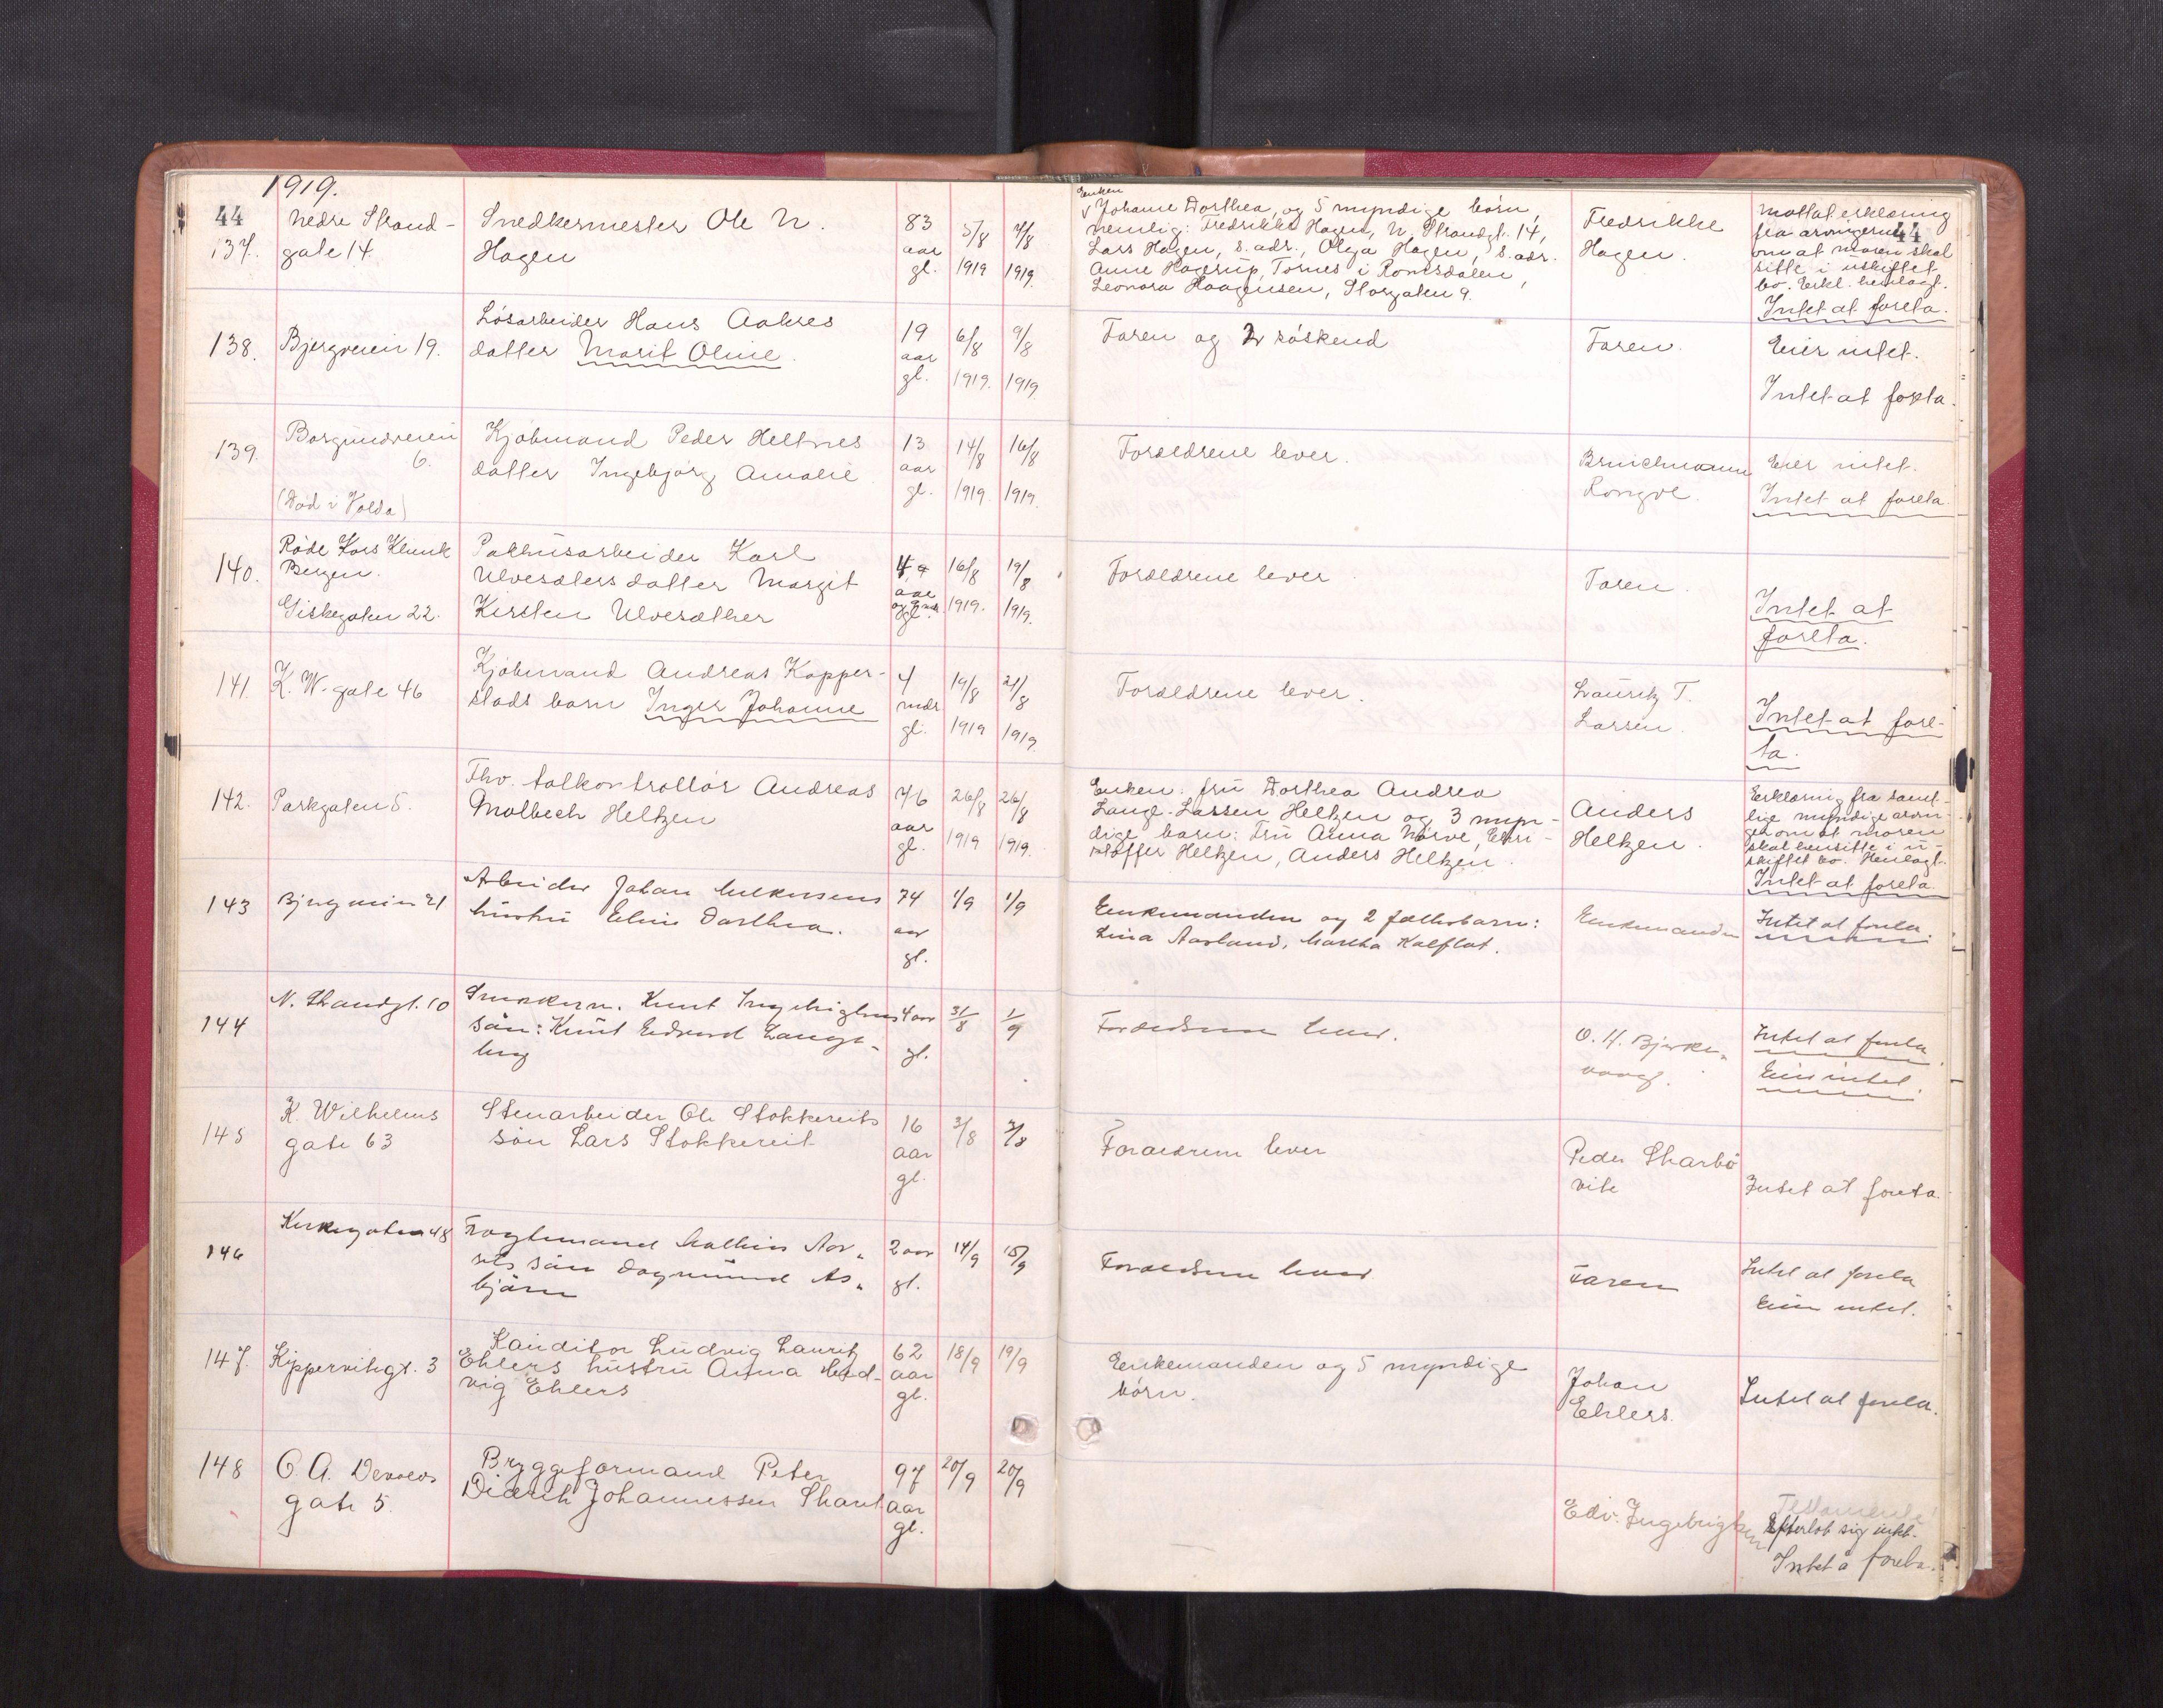 1919.
44
137.
Nedre Strand-
gate 14
Snedkermester Ole N.
Hagen
83
aar
gl.
5/8
1919
7/8
1919.
Enken
Johanne Dorthea, og 5 myndige børn,
nemlig: Fredrikke Hagen, N. Strandgt. 14,
Lars Hagen, s. adr., Olga Hagen, s. adr.
Anne Hagerup, Tornes i Romsdalen,
Leonora Haagensen, Storgaten 9.
Fredrikke
Hagen.
44
Mottat erklæring
fra arvingerne
om at moren skal
sitte i uskiftet
bo. Erkl. henlagt.
Intet at foreta.
138.
Bjergveien 19.
Løsarbeider Hans Aakres
datter Marit Oline.
19
aar
gl.
6/8
1919.
9/8
1919
Faren og 2 søskend
Faren.
Eier intet.
Intet at foreta.
139.
Borgundveien
6.
(Død i Volda)
Kjøbmand Peder Heltnes
datter Ingebjørg Amalie
13
aar
gl.
14/8
1919.
16/8
1919.
Forældrene lever.
Rongve.
Eier intet.
Intet at foreta.
140.
Røde Kors Klinik
Bergen.
Giskegaten 22.
Pakhusarbeider Karl
Ulvesæters datter Margit
Kirsten Ulvesæther
4
aar
og 9 mdr.
gl.
16/8
1919.
19/8
1919.
Forældrene lever
Faren.
Intet at
foreta.
141.
K. W. gate 46
Kjøbmand Andreas Kopper-
stads barn Inger Johanne
4
mdr.
gl.
19/8
1919
21/8
1919.
Forældrene lever.
Lauritz T.
Larsen.
Intet at fore-
ta.
142.
Parkgaten 5.
Fhv. tolkontrollør Andreas
Molbech Heltzen
76
aar
gl.
26/8
1919
26/8
1919.
Enken: fru Dorthea Andrea
Lange-Lassen Heltzen og 3 myn-
dige barn: Fru Anna Nørve, Chri-
stoffer Heltzen, Anders Heltzen.
Anders
Heltzen.
Erklæring fra samt-
lige myndige arvin-
ger om at moren
skal hensitte i u-
skiftet bo. Henlagt.
Intet at foreta
143
Bjergveien 21
Arbeider Johan
hustru Eline Dorthea.
74
aar
gl.
1/9
1/9
Enkemanden og 2 fællesbarn:
Lina Aarland, Martha Kalflot.
Enkemanden
Intet at foreta.
144
N. Strandgt. 10
Knut Ingebrigtsens
søn: Knut Edvard Lange-
4 aar
gl.
31/8
1/9
Forældrene lever.
O. H. Bjørke-
vaag.
Intet at foreta.
Eier intet.
145
K. Wilhelms
gate 63
Stenarbeider Ole Stokkereits
søn Lars Stokkereit
16
aar
gl.
3/8
7/8
Forældrene lever
Peder Skarbø
vik
Intet at foreta.
146
Kirkegaten 48
Fragtemand Mathias Aar-
sets søn Dagmund As-
bjørn
2 aar
gl.
14/9
15/9
Forældrene lever
Faren
Intet at foreta
Eier intet.
147.
Kippervikgt. 3
Konditor Ludvig Lauritz
Ehlers hustru Anna Hed-
vig Ehlers
62
aar
gl.
18/9
19/9
Enkemanden og 5 myndige
børn.
Johan
Ehlers.
Intet at foreta.
148
O. A. Devolds
gate 5.
Bryggeformand Peter
Didrik Johannessen
97
aar
gl.
20/9
20/9
Edv. Ingebrigtsen
Testamente!
Efterlot sig intet.
Intet å foreta.